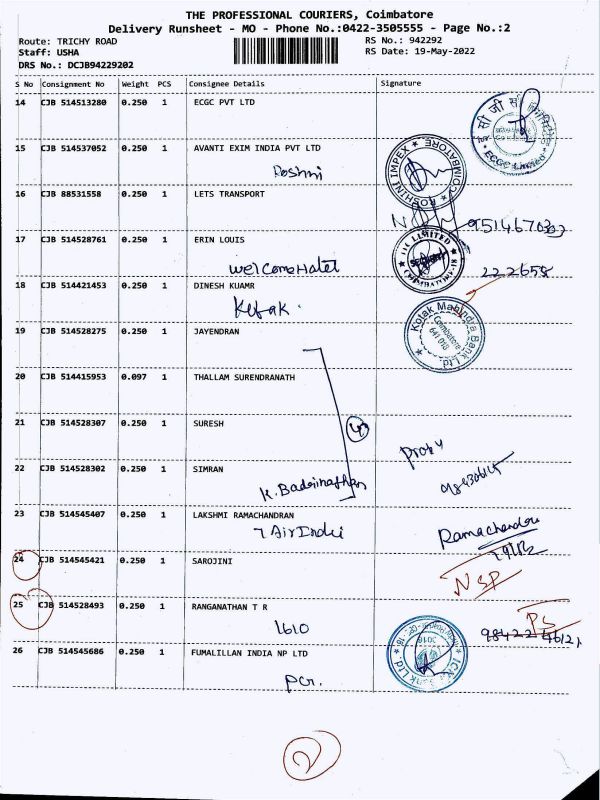 THE PROFESSIONAL COURIERS, Coimbatore
Delivery Runsheet - MO - Phone No.:0422-3505555 - Page No.:2
Route: TRICHY ROAD
Staff: USHA
DRS No.: DCJB94229202
RS No.: 942292
RS Date: 19-May-2022
S No Consignment No Weight PCS Consignee Details Signature
14 CJB 514513280 0.250 1 ECGC PVT LTD
ECGC Limited
15 CJB 514537052 0.250 1 AVANTI EXIM INDIA PVT LTD
Roshni
ROSHNI IMPEX COIMBATORE
16 CJB 88531558 0.250 1 LETS TRANSPORT
17 CJB 514528761 0.250 1 ERIN LOUIS
Welcome Hotel
LIMITED
COIMBATORE-18
222658
18 CJB 514421453 0.250 1 DINESH KUAMR
Kotak Mahindra Bank Ltd
Coimbatore
641 018
19 CJB 514528275 0.250 1 JAYENDRAN
20 CJB 514415953 0.097 1 THALLAM SURENDRANATH
21 CJB 514528307 0.250 1 SURESH
4
22 CJB 514528302 0.250 1 SIMRAN
K. Badrinathan
23 CJB 514545407 0.250 1 LAKSHMI RAMACHANDRAN
Ramachandra
24 CJB 514545421 0.250 1 SAROJINI
NSP
25 CJB 514528493 0.250 1 RANGANATHAN T R
1610
26 CJB 514545686 0.250 1 FUMALILLAN INDIA NP LTD
2